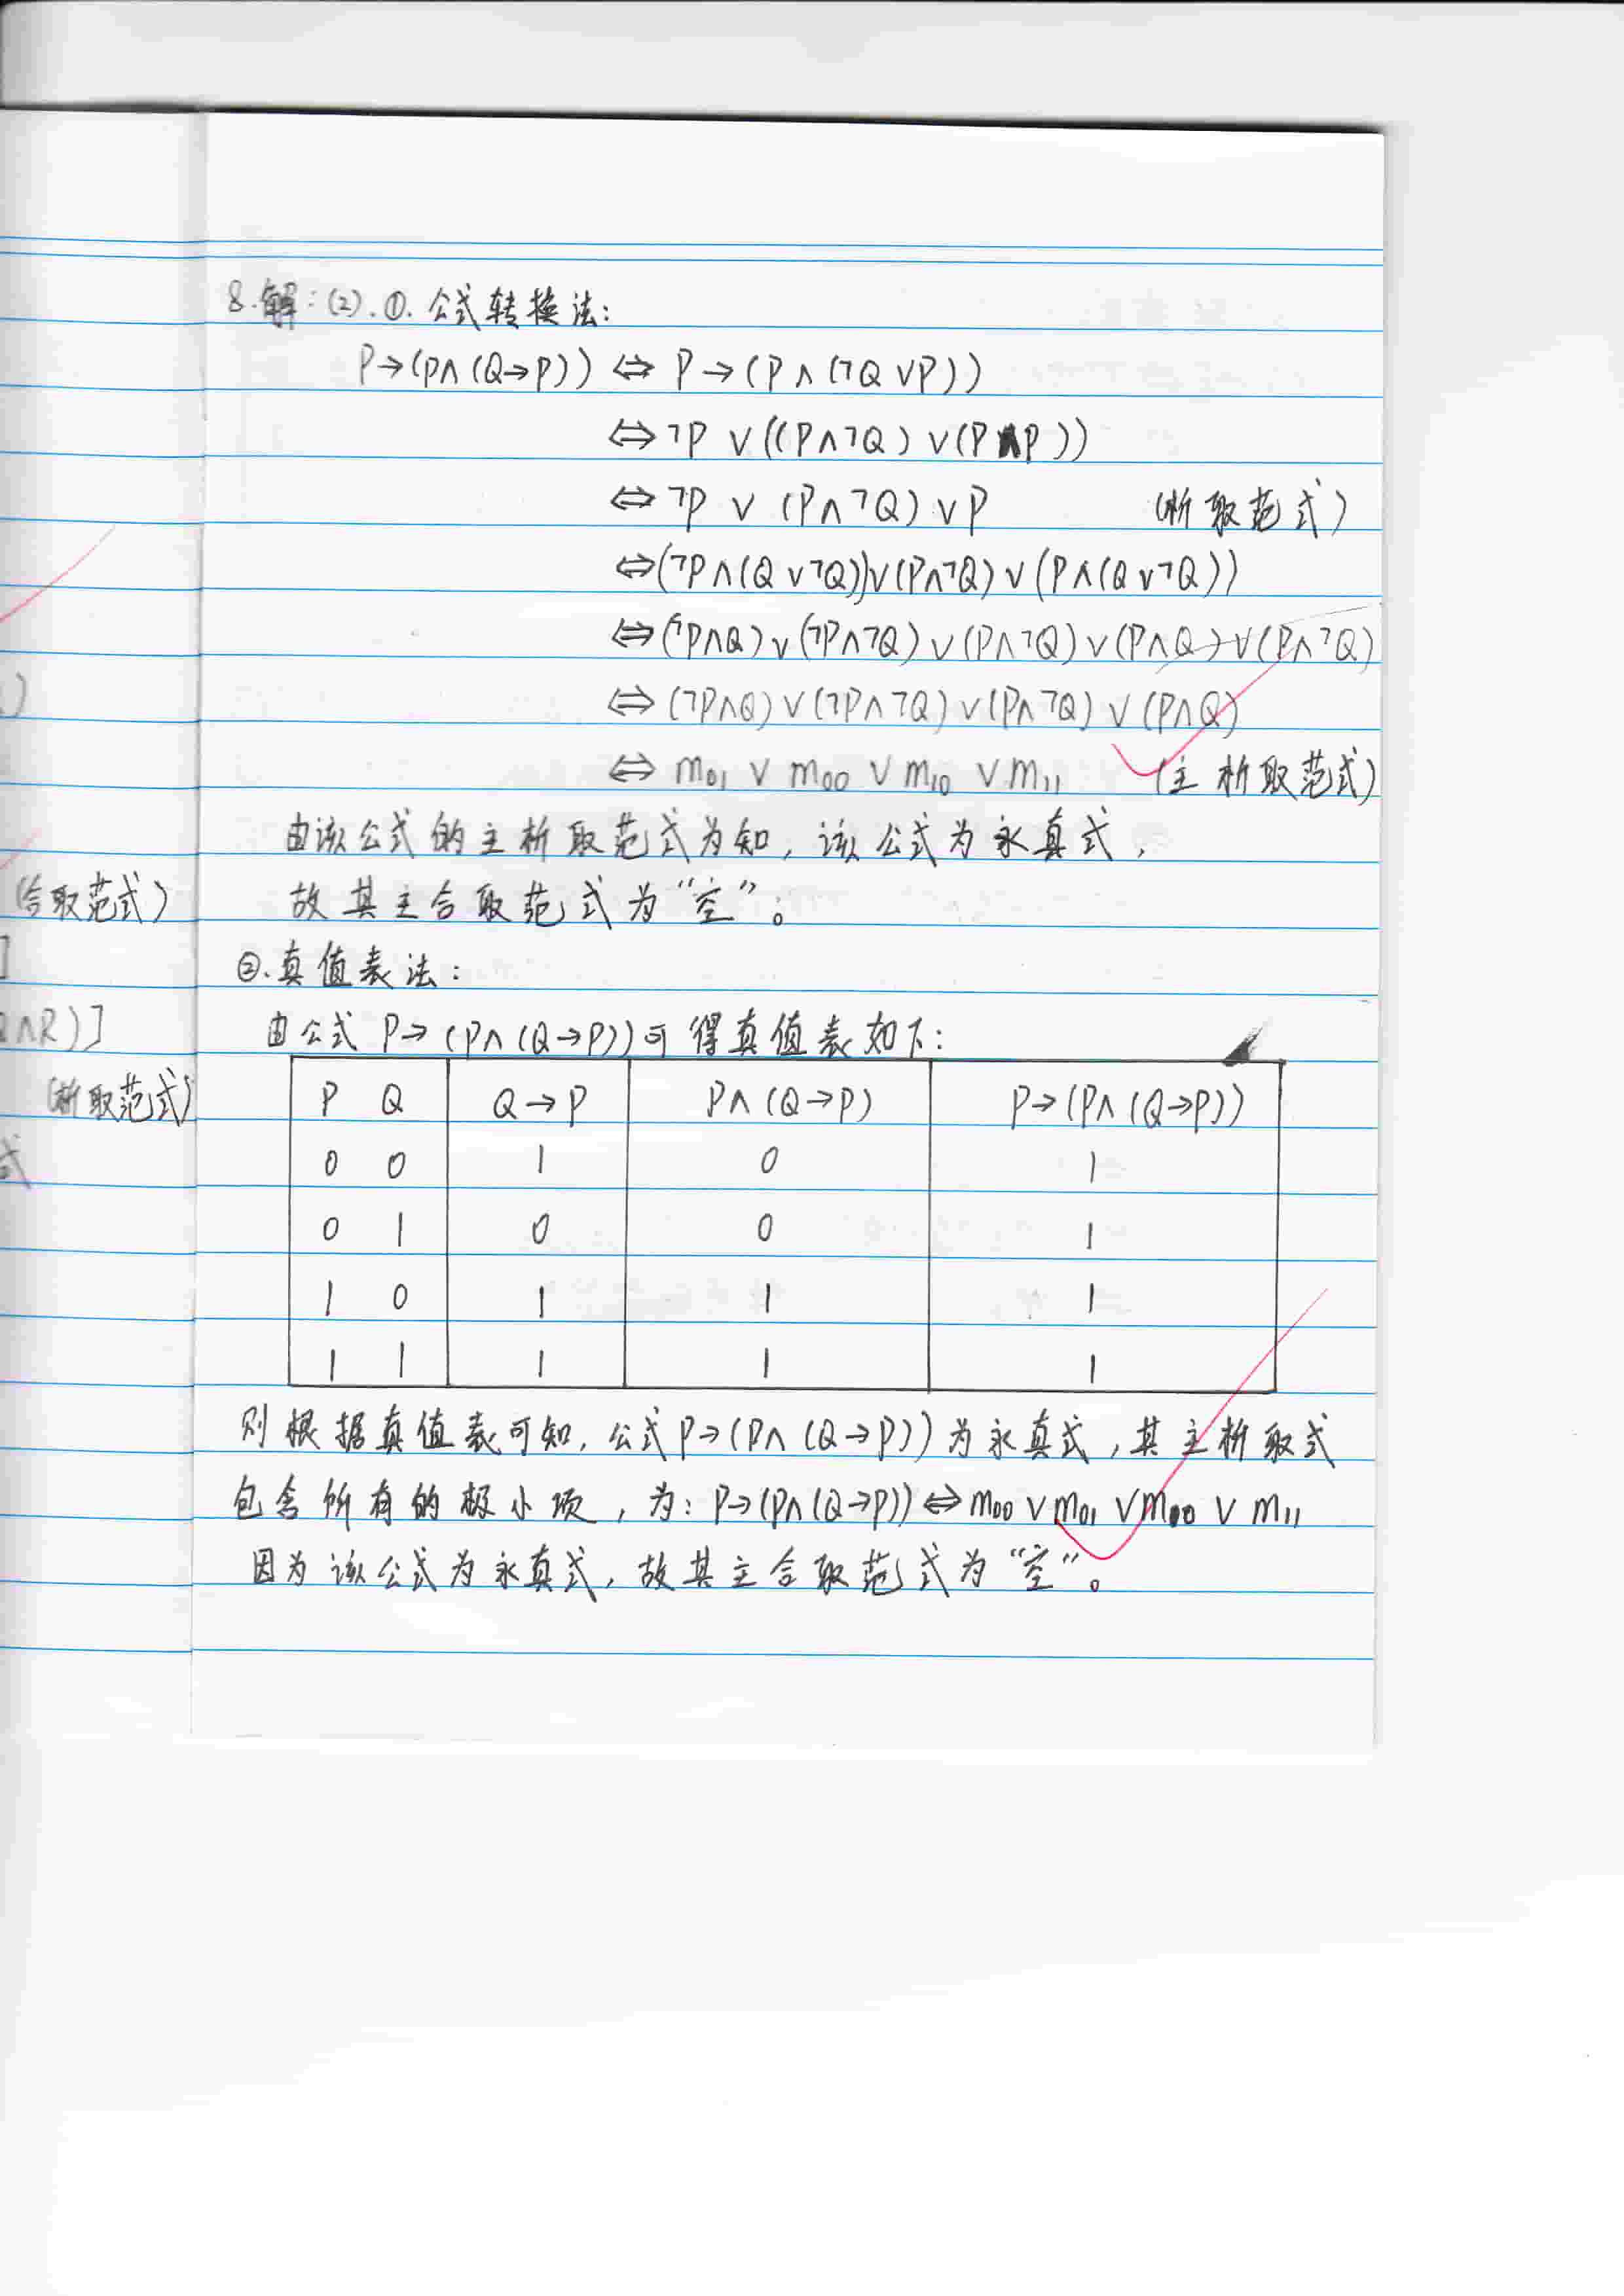 8.解:(2).①.公式转换法:
P→(P∧(Q→P)) ⇔ P→(P∧(¬Q∨P))
⇔ ¬P∨((P∧¬Q)∨(P∧P))
⇔ ¬P∨(P∧¬Q)∨P (析取范式)
⇔(¬P∧(Q∨¬Q))∨(P∧¬Q)∨(P∧(Q∨¬Q))
⇔(¬P∧Q)∨(¬P∧¬Q)∨(P∧¬Q)∨(P∧Q)∨(P∧¬Q)
⇔(¬P∧Q)∨(¬P∧¬Q)∨(P∧¬Q)∨(P∧Q)
)
⇔ m₀₁∨m₀₀∨m₁₀∨m₁₁ (主析取范式)
由该公式的主析取范式为知,该公式为永真式,
(合取范式)
故其主合取范式为“空”。
]
②.真值表法:
∧R)]
由公式 P→(P∧(Q→P))可得真值表如下:
(析取范式)
P Q Q→P P∧(Q→P) P→(P∧(Q→P))
式
0 0 1 0 1
0 1 0 0 1
1 0 1 1 1
1 1 1 1 1
则根据真值表可知,公式P→(P∧(Q→P))为永真式,其主析取式
包含所有的极小项,为:P→(P∧(Q→P))⇔m₀₀∨m₀₁∨m₁₀∨m₁₁
因为该公式为永真式,故其主合取范式为“空”。